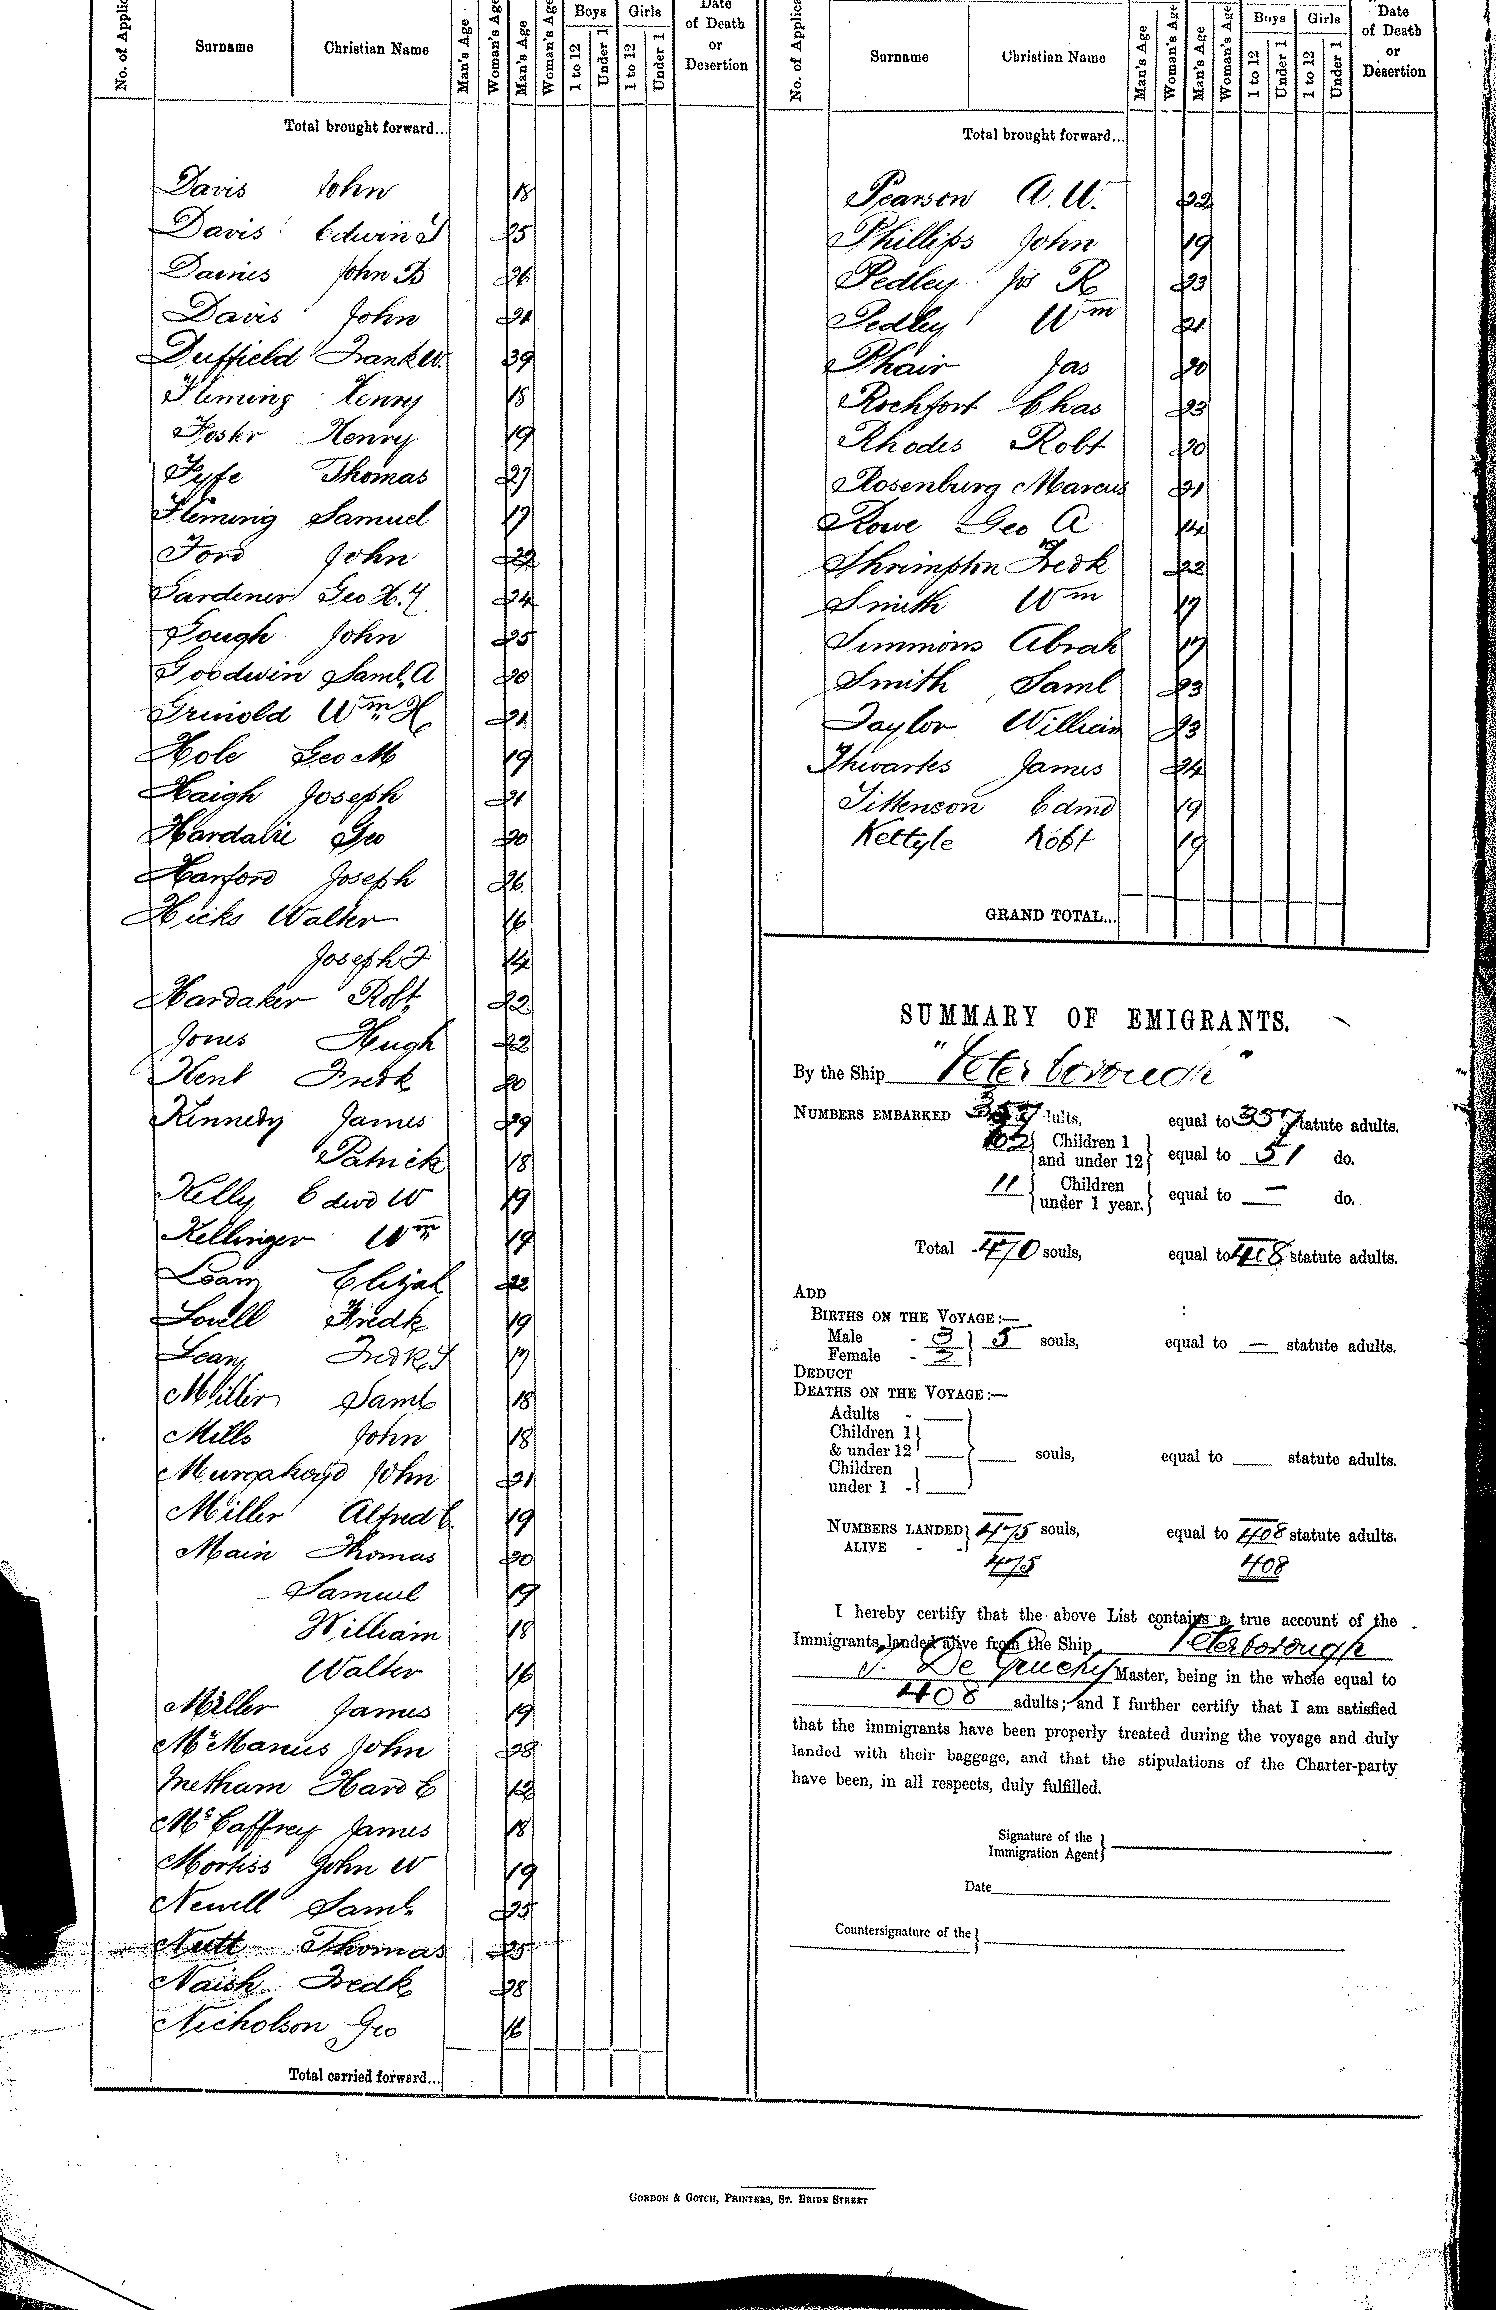 No. of Applic
Surname Christian Name Man's Age Woman's Age Man's Age Woman's Age Boys 1 to 12 Under 1 Girls 1 to 12 Under 1 Date of Death or Desertion
Total brought forward...
Davis John 18
Davis Edwin J 25
Dainies John B 26
Davis John 21
Duffield Frank W. 39
Fleming Henry 18
Foster Henry 19
Fyfe Thomas 27
Fleming Samuel 17
Ford John 22
Gardener Geo H. Y. 24
Gough John 25
Goodwin Saml. A 20
Grinold Wm. H. 21
Hole Geo M 19
Haigh Joseph 21
Hardalie Geo 20
Hanford Joseph 26
Hicks Walter 16
Joseph J 14
Hardaker Robt. 22
Jones Hugh 22
Kent Fredk 20
Kennedy James 29
Patrick 18
Kelly Edwd W 19
Kellinger Wm 19
Loam Elijah 22
Lovell Fredk 19
Loam Fredk J 17
Miller Saml 18
Mills John 18
Murgatroyd John 21
Miller Alfred C. 19
Main Thomas 20
Samuel 19
William 18
Walter 16
Miller James 19
McManus John 28
Metham Hard C 12
McCaffrey James 18
Mortiss John W 19
Newell Saml. 25
Nutt Thomas 25
Naish Fredk 28
Nicholson Geo 16
Total carried forward...
No. of Applica
Surname Christian Name Man's Age Woman's Age Man's Age Woman's Age Boys 1 to 12 Under 1 Girls 1 to 12 Under 1 Date of Death or Desertion
Total brought forward...
Pearson A. W. 22
Phillips John 19
Pedley Jos R 23
Pedley Wm 21
Phair Jas 20
Rochfort Chas 23
Rhodes Robt 20
Rosenburg Marcus 21
Rowe Geo A 14
Shrimpton Fredk 22
Smith Wm 17
Simmons Abrah 17
Smith Saml 23
Taylor William 23
Thwartes James 24
Tittencon Edmd 19
Kettyle Robt 19
GRAND TOTAL...
SUMMARY OF EMIGRANTS.
By the Ship "Peterborough"
NUMBERS EMBARKED 357 dults, equal to 357 tatute adults.
102 Children 1 and under 12 equal to 51 do.
11 Children under 1 year. equal to — do.
Total 470 souls, equal to 408 statute adults.
ADD
BIRTHS ON THE VOYAGE:—
Male - 3 } 5 souls, equal to — statute adults.
Female - 2
DEDUCT
DEATHS ON THE VOYAGE:—
Adults -
Children 1
& under 12 souls, equal to statute adults.
Children
under 1 -
NUMBERS LANDED ALIVE - - 475 souls, equal to 408 statute adults.
475 408
I hereby certify that the above List contains a true account of the
Immigrants landed alive from the Ship Peterborough
J. De Gruchy Master, being in the whole equal to
408 adults; and I further certify that I am satisfied
that the immigrants have been properly treated during the voyage and duly
landed with their baggage, and that the stipulations of the Charter-party
have been, in all respects, duly fulfilled.
Signature of the
Immigration Agent
Date
Countersignature of the
GORDON & GOTCH, PRINTERS, ST. BRIDE STREET